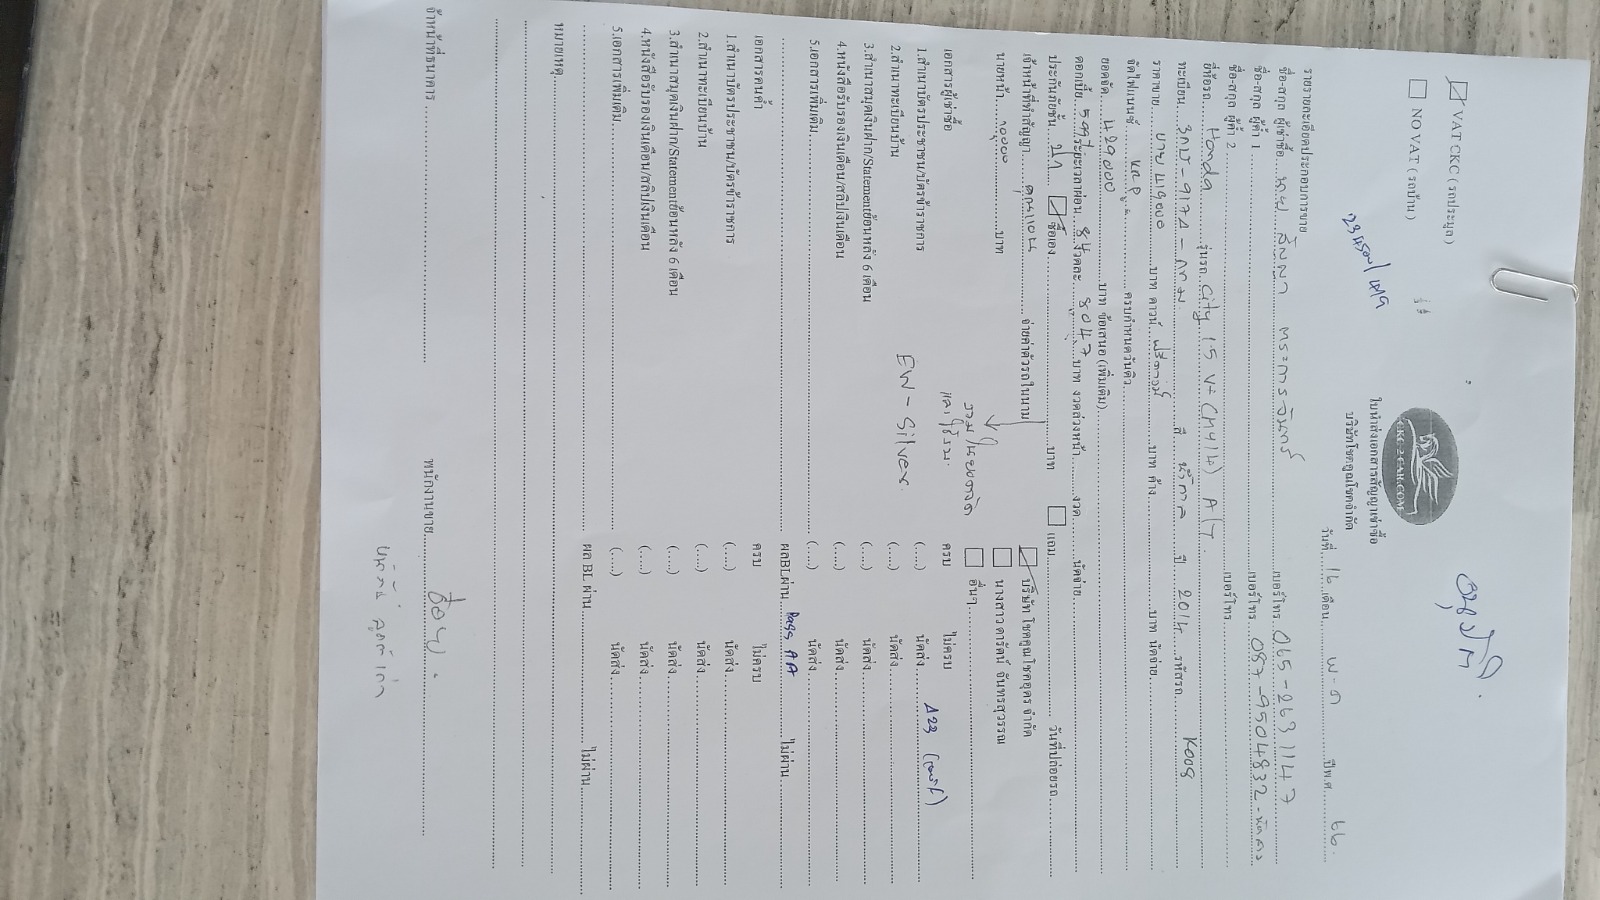 อนุมัติ
CKC2CAR.COM
ใบนำส่งเอกสารสัญญาเช่าซื้อ
บริษัทโชคคูณโชคจำกัด
VAT CKC ( รถประมูล )
NO VAT ( รถบ้าน )
วันที่ 16 เดือน พ-ค ปีพ.ศ. 66
รายรายละเอียดประกอบการขาย
ชื่อ-สกุล ผู้เช่าซื้อ นาย เบอร์โทร 065-263 1147
ชื่อ-สกุล ผู้ค้ำ 1 เบอร์โทร 087-9504832
ชื่อ-สกุล ผู้ค้ำ 2 เบอร์โทร
ยี่ห้อรถ Honda รุ่นรถ City 1.5 V+ (MY14) A/T.
ทะเบียน - กทม สี น้ำตาล ปี 2014 รหัสรถ K009
ราคาขาย ขาย 419000 บาท ดาวน์ ฟรีดาวน์ บาท ค้าง บาท นัดจ่าย
จัดไฟแนนซ์ KKP ครบกำหนดวันคิว
ยอดจัด 429000 บาท ข้อเสนอ (เพิ่มเติม)
ดอกเบี้ย ระยะเวลาผ่อน 84 งวดละ 8047 บาท งวดล่วงหน้า งวด นัดจ่าย
ประกันภัยชั้น ซื้อเอง บาท แถม วันที่ปล่อยรถ
เจ้าหน้าที่ทำสัญญา จ่ายค่าตัวรถในนาม บริษัท โชคคูณโชคอุดร จำกัด
นายหน้า 10000 บาท นางสาว ดารัตน์ จันทรสุวรรณ
อื่นๆ
เอกสารผู้เช่าซื้อ ครบ ไม่ครบ
1.สำเนาบัตรประชาชน/บัตรข้าราชการ (....) นัดส่ง
2.สำเนาทะเบียนบ้าน EW - Silver. (....) นัดส่ง
3.สำเนาสมุดเงินฝาก/Statementย้อนหลัง 6 เดือน (....) นัดส่ง
4.หนังสือรับรองเงินเดือน/สลิปเงินเดือน (....) นัดส่ง
5.เอกสารเพิ่มเติม (....) นัดส่ง
ผลBLผ่าน Pass AA ไม่ผ่าน
เอกสารคนค้ำ ครบ ไม่ครบ
1.สำเนาบัตรประชาชน/บัตรข้าราชการ (....) นัดส่ง
2.สำเนาทะเบียนบ้าน (....) นัดส่ง
3.สำเนาสมุดเงินฝาก/Statementย้อนหลัง 6 เดือน (....) นัดส่ง
4.หนังสือรับรองเงินเดือน/สลิปเงินเดือน (....) นัดส่ง
5.เอกสารเพิ่มเติม (....) นัดส่ง
ผล BL ผ่าน ไม่ผ่าน
หมายเหตุ
จ้าหน้าที่ธนาคาร พนักงานขาย